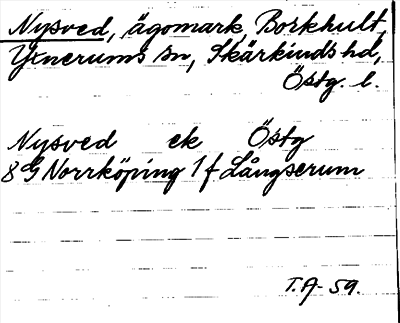 Nysved, ägomark, Borkhult,
Yxnerums sn, Skärkinds hd,
Östg. l.
Nysved ek Östg
8G Norrköping 1f Långserum
T.A. 59.